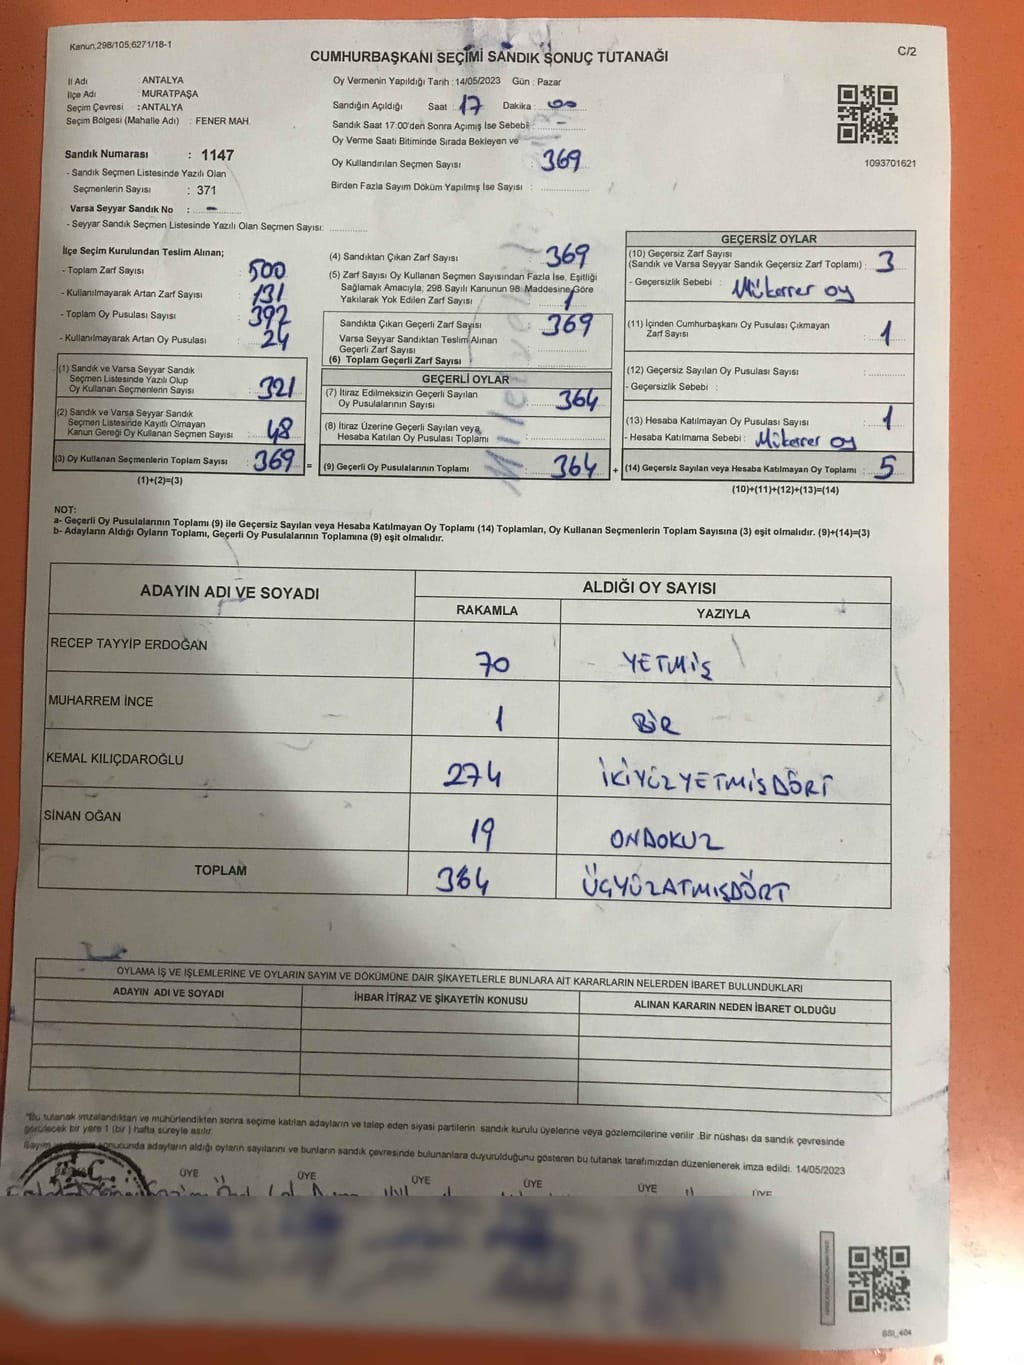 Kanun;298/105,6271/18-1
CUMHURBAŞKANI SEÇİMİ SANDIK SONUÇ TUTANAĞI
C/2
İl Adı : ANTALYA
İlçe Adı : MURATPAŞA
Seçim Çevresi : ANTALYA
Seçim Bölgesi (Mahalle Adı) : FENER MAH.
Oy Vermenin Yapıldığı Tarih : 14/05/2023 Gün : Pazar
Sandığın Açıldığı Saat : 17 Dakika : 00
Sandık Saat 17:00'den Sonra Açımış İse Sebebi : -
Oy Verme Saati Bitiminde Sırada Bekleyen ve
Oy Kullandırılan Seçmen Sayısı 369
Birden Fazla Sayım Döküm Yapılmış İse Sayısı :
1093701621
Sandık Numarası : 1147
- Sandık Seçmen Listesinde Yazılı Olan
Seçmenlerin Sayısı : 371
Varsa Seyyar Sandık No : -
- Seyyar Sandık Seçmen Listesinde Yazılı Olan Seçmen Sayısı:
İlçe Seçim Kurulundan Teslim Alınan;
- Toplam Zarf Sayısı : 500
- Kullanılmayarak Artan Zarf Sayısı : 131
- Toplam Oy Pusulası Sayısı : 392
- Kullanılmayarak Artan Oy Pusulası : 24
(1) Sandık ve Varsa Seyyar Sandık
Seçmen Listesinde Yazılı Olup
Oy Kullanan Seçmenlerin Sayısı : 321
(2) Sandık ve Varsa Seyyar Sandık
Seçmen Listesinde Kayıtlı Olmayan
Kanun Gereği Oy Kullanan Seçmen Sayısı : 48
(3) Oy Kullanan Seçmenlerin Toplam Sayısı : 369 =
(1)+(2)=(3)
(4) Sandıktan Çıkan Zarf Sayısı 369
(5) Zarf Sayısı Oy Kullanan Seçmen Sayısından Fazla İse, Eşitliği
Sağlamak Amacıyla; 298 Sayılı Kanunun 98. Maddesine Göre
Yakılarak Yok Edilen Zarf Sayısı
Sandıkta Çıkan Geçerli Zarf Sayısı 369
Varsa Seyyar Sandıktan Teslim Alınan
Geçerli Zarf Sayısı
(6) Toplam Geçerli Zarf Sayısı
GEÇERLİ OYLAR
(7) İtiraz Edilmeksizin Geçerli Sayılan
Oy Pusulalarının Sayısı : 364
(8) İtiraz Üzerine Geçerli Sayılan veya
Hesaba Katılan Oy Pusulası Toplamı :
(9) Geçerli Oy Pusulalarının Toplamı : 364 +
GEÇERSİZ OYLAR
(10) Geçersiz Zarf Sayısı
(Sandık ve Varsa Seyyar Sandık Geçersiz Zarf Toplamı) : 3
- Geçersizlik Sebebi : Mükerrer oy
(11) İçinden Cumhurbaşkanı Oy Pusulası Çıkmayan
Zarf Sayısı : 1
(12) Geçersiz Sayılan Oy Pusulası Sayısı :
- Geçersizlik Sebebi :
(13) Hesaba Katılmayan Oy Pusulası Sayısı : 1
- Hesaba Katılmama Sebebi : Mükerrer oy
(14) Geçersiz Sayılan veya Hesaba Katılmayan Oy Toplamı : 5
(10)+(11)+(12)+(13)=(14)
NOT:
a- Geçerli Oy Pusulalarının Toplamı (9) ile Geçersiz Sayılan veya Hesaba Katılmayan Oy Toplamı (14) Toplamları, Oy Kullanan Seçmenlerin Toplam Sayısına (3) eşit olmalıdır. (9)+(14)=(3)
b- Adayların Aldığı Oyların Toplamı, Geçerli Oy Pusulalarının Toplamına (9) eşit olmalıdır.
ADAYIN ADI VE SOYADI
ALDIĞI OY SAYISI
RAKAMLA YAZIYLA
RECEP TAYYİP ERDOĞAN 70 YETMİŞ
MUHARREM İNCE 1 BİR
KEMAL KILIÇDAROĞLU 274 İKİYÜZYETMİŞDÖRT
SİNAN OĞAN 19 ONDOKUZ
TOPLAM 364 ÜÇYÜZATMIŞDÖRT
OYLAMA İŞ VE İŞLEMLERİNE VE OYLARIN SAYIM VE DÖKÜMÜNE DAİR ŞİKAYETLERLE BUNLARA AİT KARARLARIN NELERDEN İBARET BULUNDUKLARI
ADAYIN ADI VE SOYADI İHBAR İTİRAZ VE ŞİKAYETİN KONUSU ALINAN KARARIN NEDEN İBARET OLDUĞU
*Bu tutanak imzalandıktan ve mühürlendikten sonra seçime katılan adayların ve talep eden siyasi partilerin sandık kurulu üyelerine veya gözlemcilerine verilir. Bir nüshası da sandık çevresinde
görülecek bir yere 1 (bir) hafta süreyle asılır.
sonucunda adayların aldığı oyların sayılarını ve bunların sandık çevresinde bulunanlara duyurulduğunu gösteren bu tutanak tarafımızdan düzenlenerek imza edildi. 14/05/2023
ÜYE ÜYE ÜYE ÜYE ÜYE ÜYE